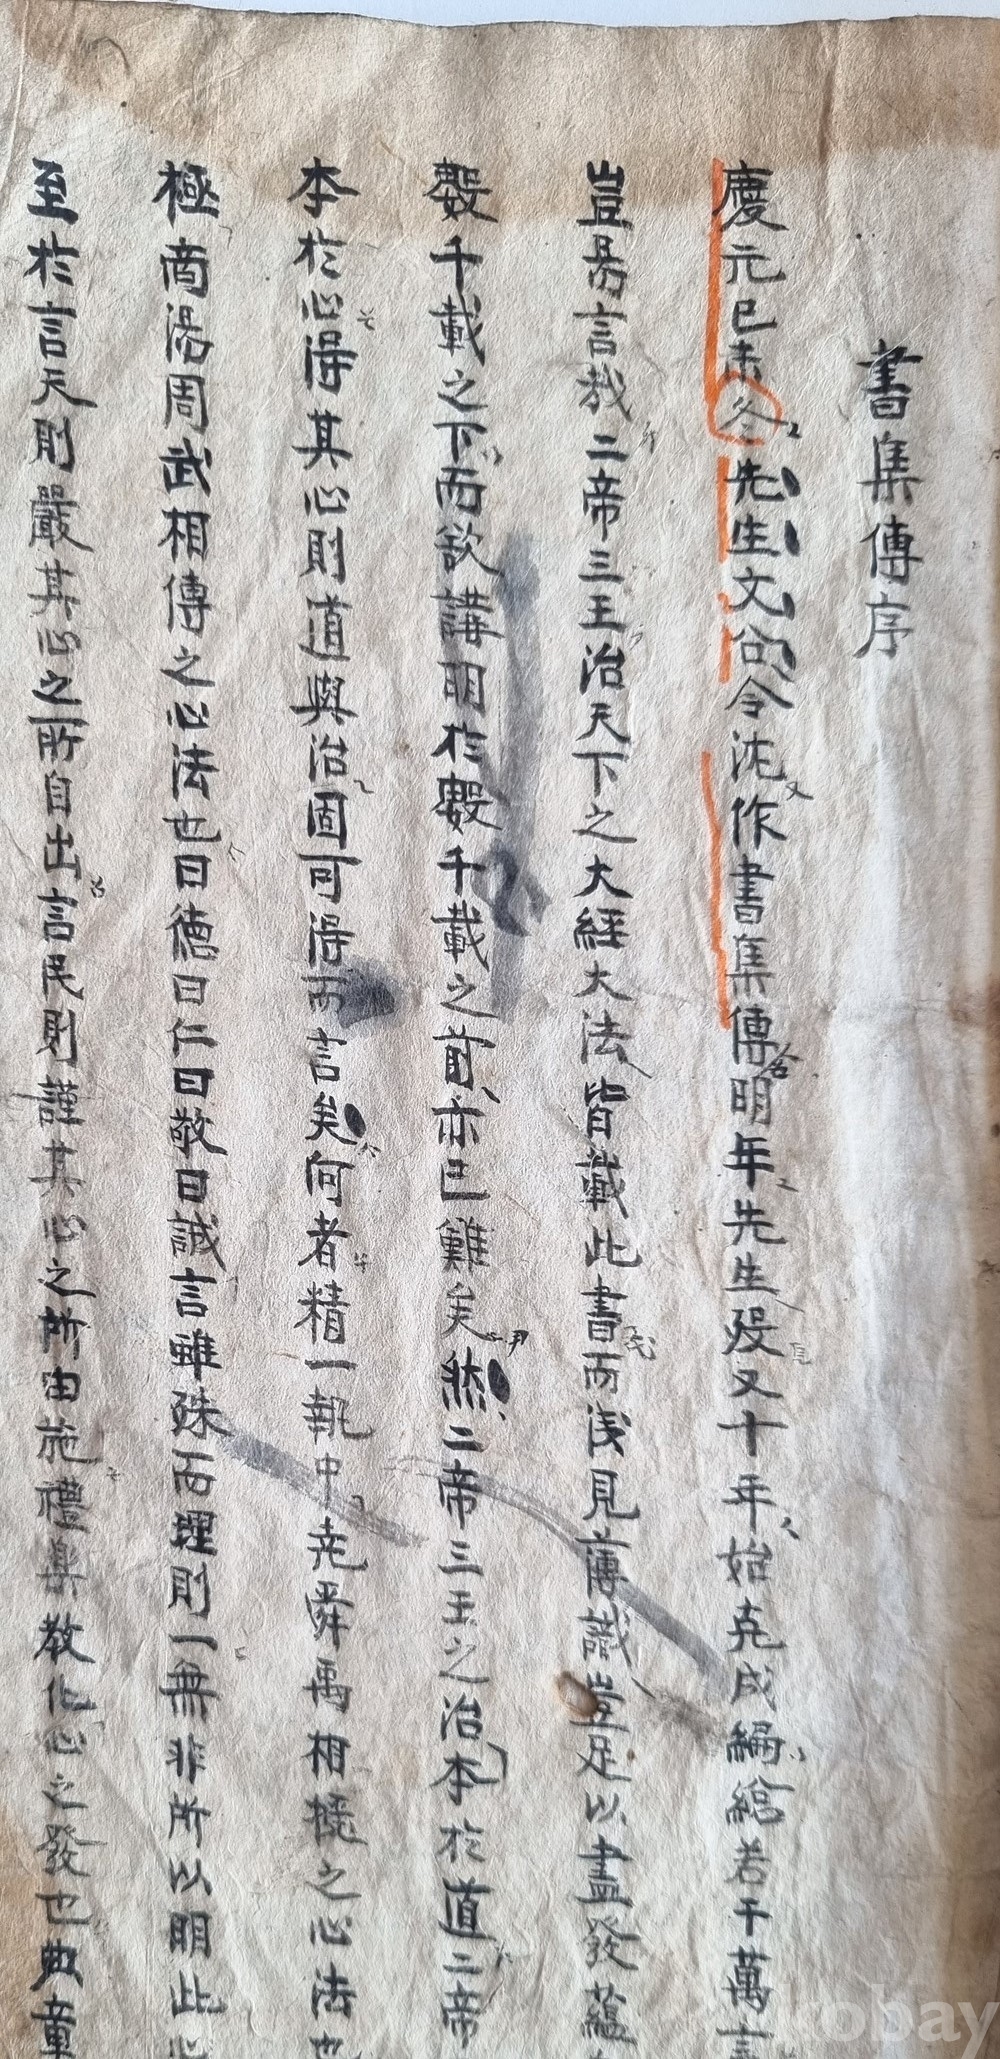 書集傳序
慶元已未冬先生文公令沈作書集傳明年先生歿又十年始克成編緫若干萬言
豈易言哉二帝三王治天下之大經大法皆載此書而浅見薄識豈足以盡發蘊
數千載之下而欲講明於數千載之前亦已難矣然二帝三王之治本於道二帝
本於心得其心則道與治固可得而言矣何者精一執中尭舜禹相授之心法也
極商湯周武相傳之心法也曰德曰仁曰敬曰誠言雖殊而理則一無非所以明此
至於言天則嚴其心之所自出言民則謹其心之所由施禮樂教化心之發也典章
kobay